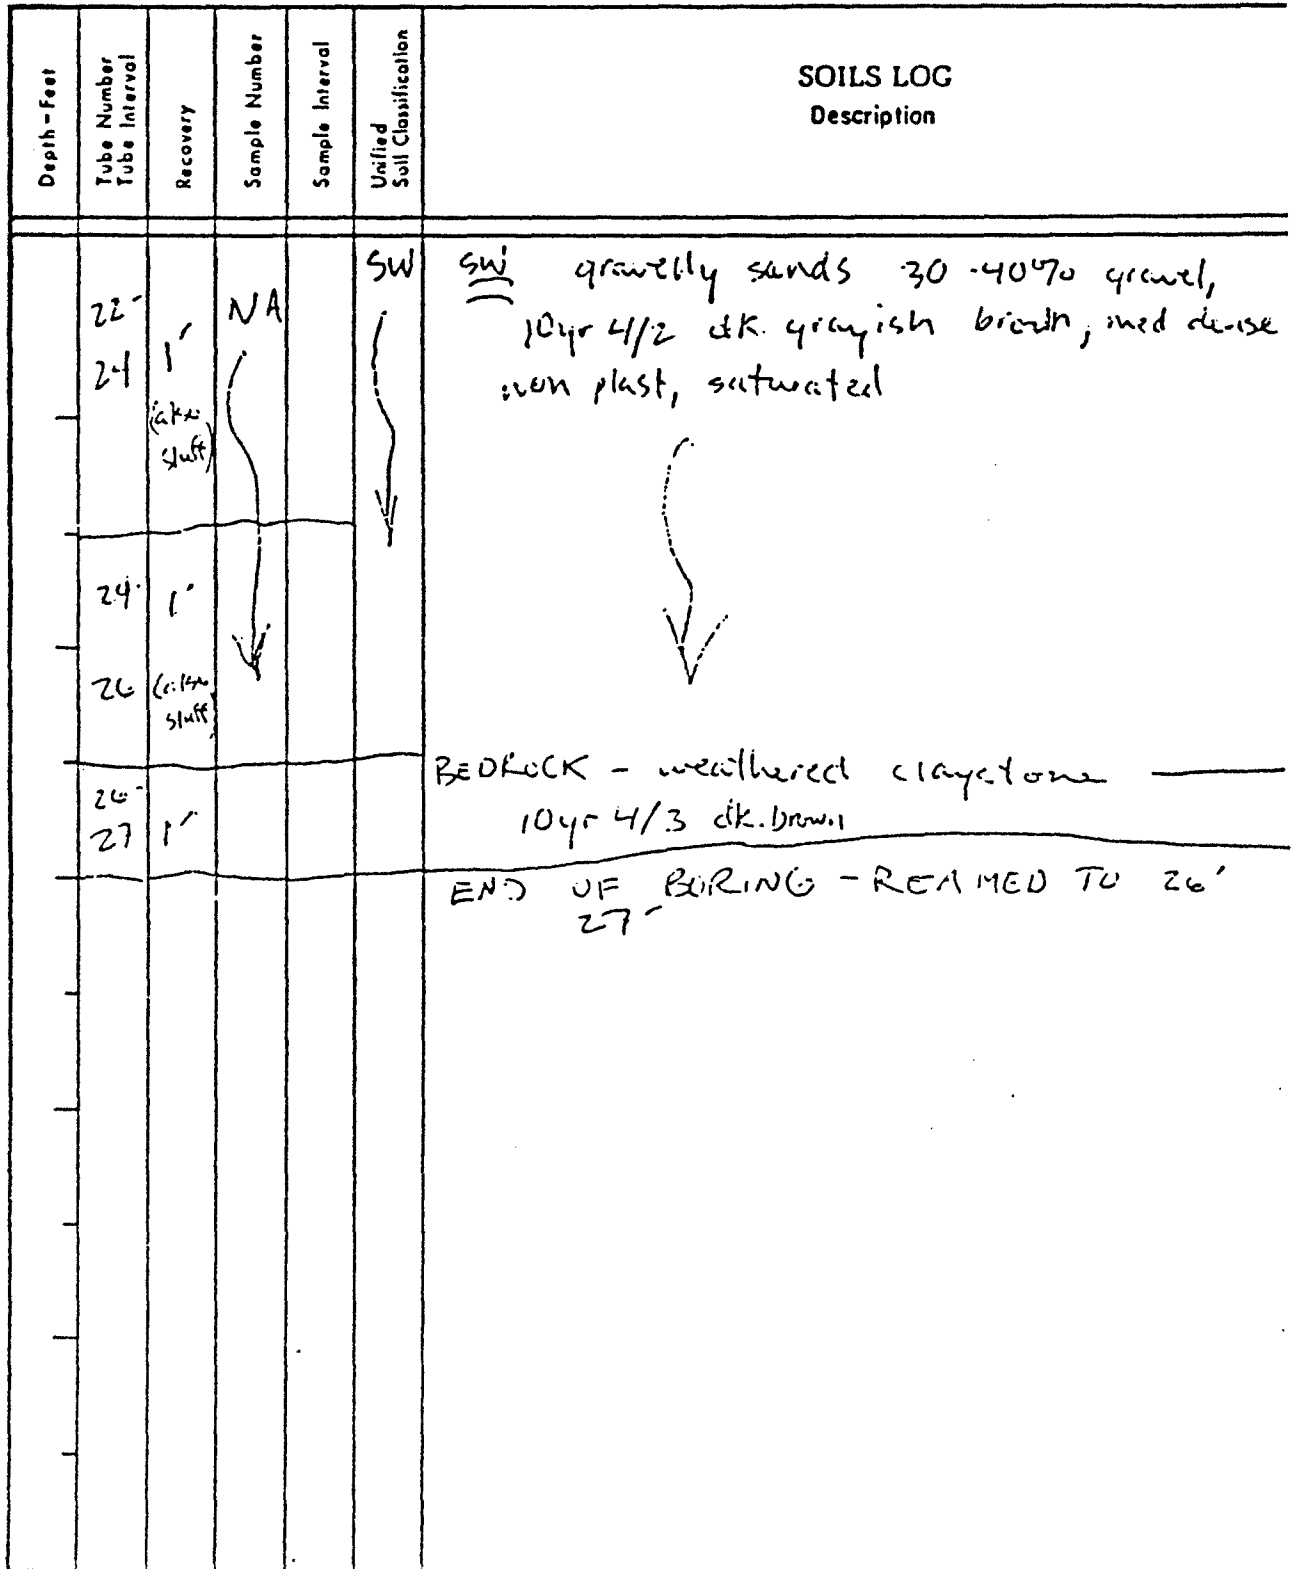 Depth-Feet
Tube Number
Tube Interval
Recovery
Sample Number
Sample Interval
Unified
Soil Classification
SOILS LOG
Description
SW SW gravelly sands 30-40% gravel,
22- NA
10yr 4/2 dk. grayish brown, med dense
24 1'
non plast, saturated
sluff)
24- 1'
26
sluff)
BEDROCK - weathered claystone
26-
10yr 4/3 dk. brown
27 1'
END OF BORING - REAMED TO 26'
27'